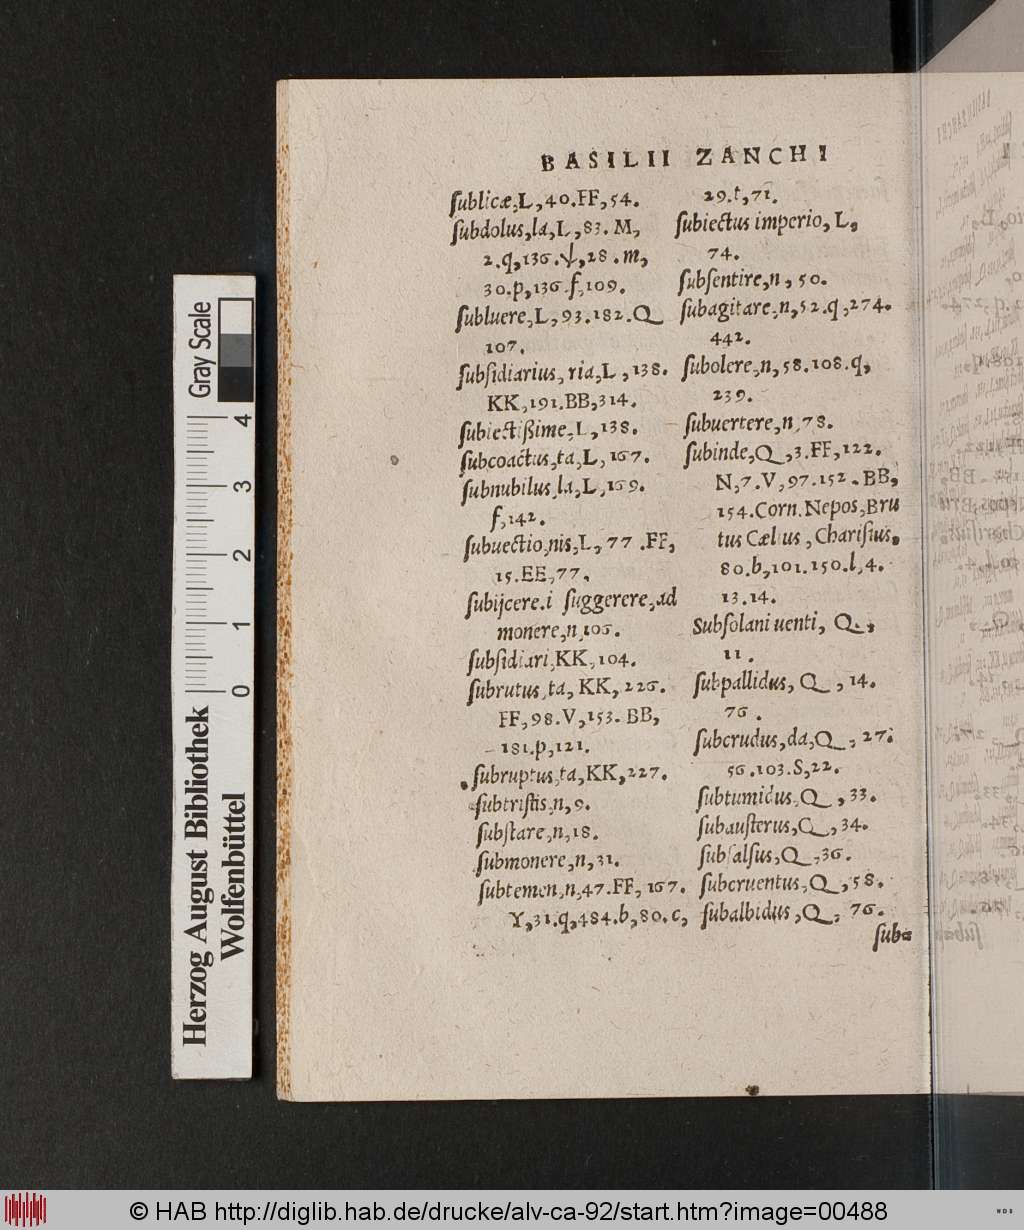 BASILII ZANCHI
ſublicæ, L, 40. FF, 54.
ſubdolus, la, L, 83. M,
2. q, 136. Ψ, 28. m,
30. p, 136. f, 109.
ſubluere, L, 93. 182. Q
107.
ſubſidiarius, ria, L, 138.
KK, 191. BB, 314.
ſubiectißime, L, 138.
ſubcoactus, ta, L, 167.
ſubnubilus, la, L, 169.
f, 142.
ſubuectio, nis, L, 77. FF,
15. EE, 77.
ſubijcere. i ſuggerere, ad
monere, n, 106.
ſubſidiari, KK, 104.
ſubrutus, ta, KK, 226.
FF, 98. V, 153. BB,
181. p, 121.
ſubruptus, ta, KK, 227.
ſubtriſtis, n, 9.
ſubſtare, n, 18.
ſubmonere, n, 31.
ſubtemen, n, 47. FF, 167.
Y, 31. q, 484. b, 80. c,
29. t, 71.
ſubiectus imperio, L,
74.
ſubſentire, n, 50.
ſubagitare, n, 52. q, 274.
442.
ſubolere, n, 58. 108. q,
239.
ſubuertere, n, 78.
ſubinde, Q, 3. FF, 122.
N, 7. V, 97. 152. BB,
154. Corn. Nepos, Bru
tus Cælius, Chariſius,
80. b, 101. 150. l, 4.
13. 14.
Subſolani uenti, Q,
11.
ſubpallidus, Q, 14.
76.
ſubcrudus, da, Q, 27.
56. 103. S, 22.
ſubtumidus, Q, 33.
ſubauſterus, Q, 34.
ſubſalſus, Q, 36.
ſubcruentus, Q, 58.
ſubalbidus, Q, 76.
ſuba
Gray Scale
4
3
2
1
0
Herzog August Bibliothek
Wolfenbüttel
© HAB http://diglib.hab.de/drucke/alv-ca-92/start.htm?image=00488